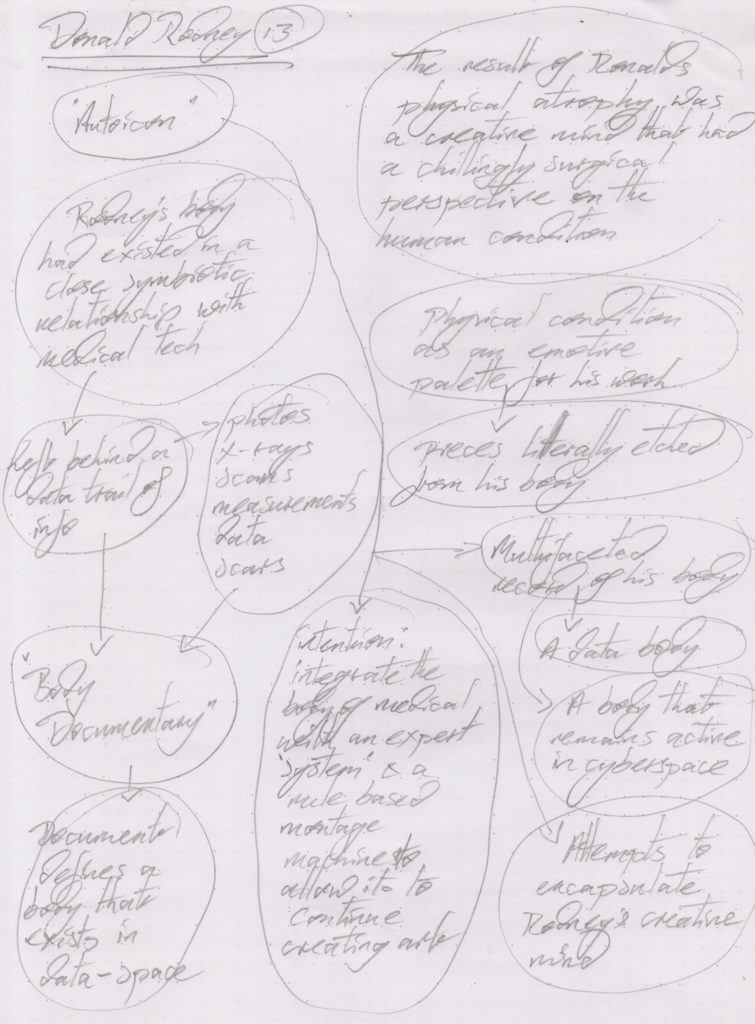 Donald Rodney 13
"Autoicon"
Rodney's body
had existed in a
close symbiotic
relationship with
medical tech
left behind a
data trail of
info
photos
x-rays
scans
measurements
data
scars
"Body
Documentary"
Document
defines a
body that
exists in
data-space
intention:
integrate the
body of medical
with an expert
"system" & a
rule based
montage
machine to
allow it to
continue
creating art
The result of Donalds
physical atrophy was
a creative mind that had
a chillingly surgical
perspective on the
human condition
Physical condition
as an emotive
palette for his work
pieces literally etched
from his body
Multifaceted
record of his body
A data body
A body that
remains active
in cyberspace
Attempts to
encapsulate
Rodney's creative
mind